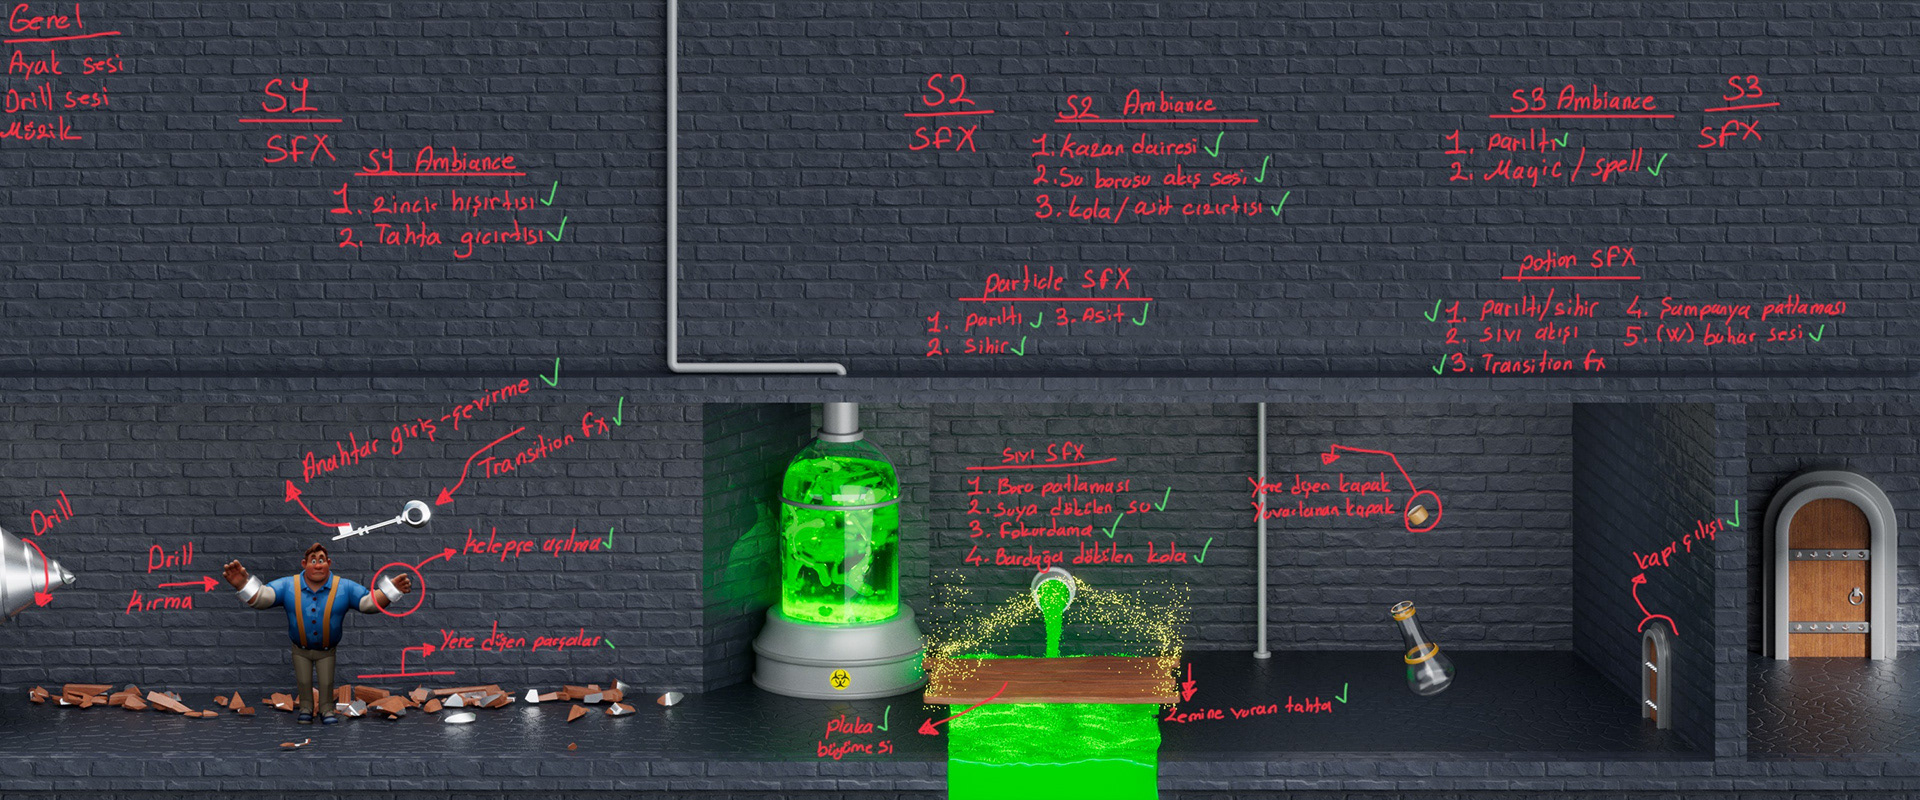 Genel
Ayak sesi
Drill sesi
Müzik
S1
SFX
S1 Ambiance
1. Zincir hışırtısı ✓
2. Tahta gıcırtısı ✓
S2
SFX
S2 Ambiance
1. Kazan dairesi ✓
2. Su borusu akış sesi ✓
3. kola / asit cızırtısı ✓
particle SFX
1. parıltı ✓ 3. Asit ✓
2. sihir ✓
S3 Ambiance
1. parıltı ✓
2. Magic / spell ✓
S3
SFX
potion SFX
✓ 1. parıltı/sihir 4. Şampanya patlaması
2. sıvı akışı 5. (W) buhar sesi ✓
✓ 3. Transition fx
Anahtar giriş-çevirme ✓
Transition fx ✓
Drill
Drill
Kırma
kelepçe açılma ✓
Yere düşen parçalar
SIVI SFX
1. Boru patlaması
2. Suya dökülen su ✓
3. Fokurdama ✓
4. Bardağa dökülen kola ✓
plaka ✓
büyümesi
Zemine vuran tahta ✓
Yere düşen kapak
Yuvarlanan kapak
kapı açılışı ✓